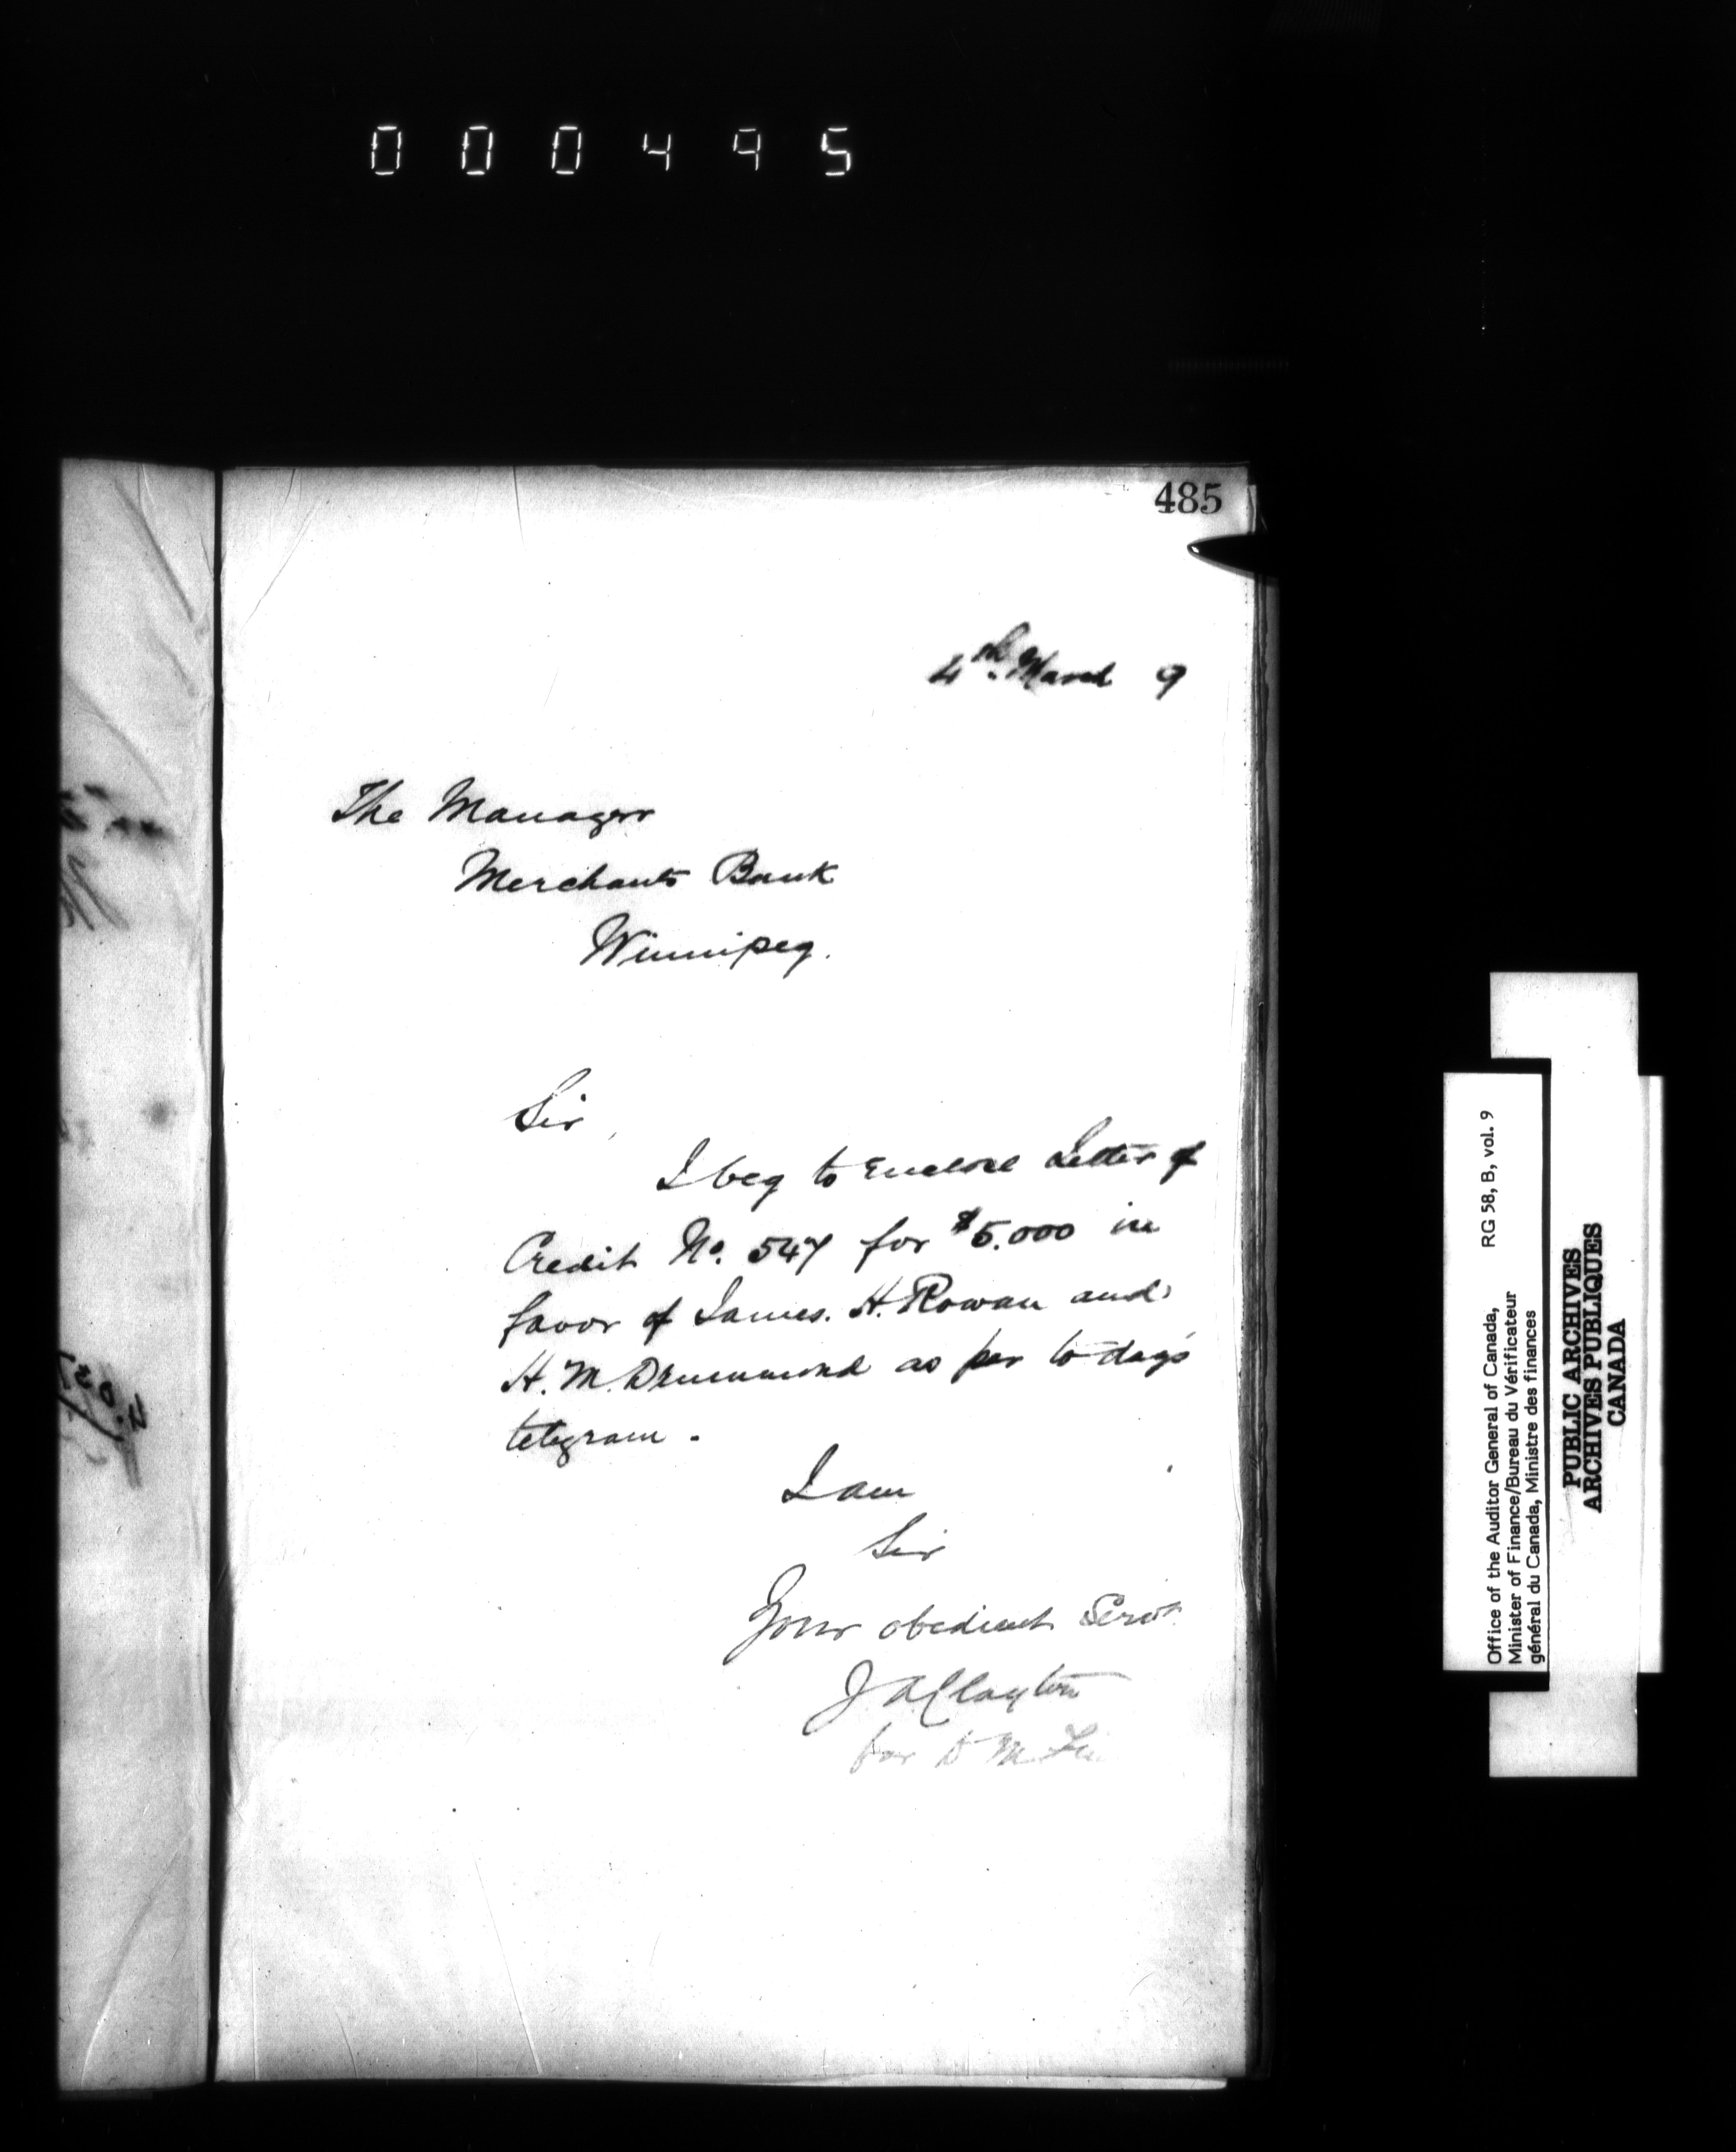 000495
485
4th. March 9
The Manager
Merchants Bank
Winnipeg.
Sir,
I beg to enclose Letter of
Credit No. 547 for $5.000 in
favor of James. H. Rowan and
H. M. Drummond as per to-day's
telegram.
I am
Sir
Your obedient Servt
J A Clayton
for D M Fin
Office of the Auditor General of Canada, RG 58, B, vol. 9
Minister of Finance/Bureau du Vérificateur
général du Canada, Ministre des finances
PUBLIC ARCHIVES
ARCHIVES PUBLIQUES
CANADA